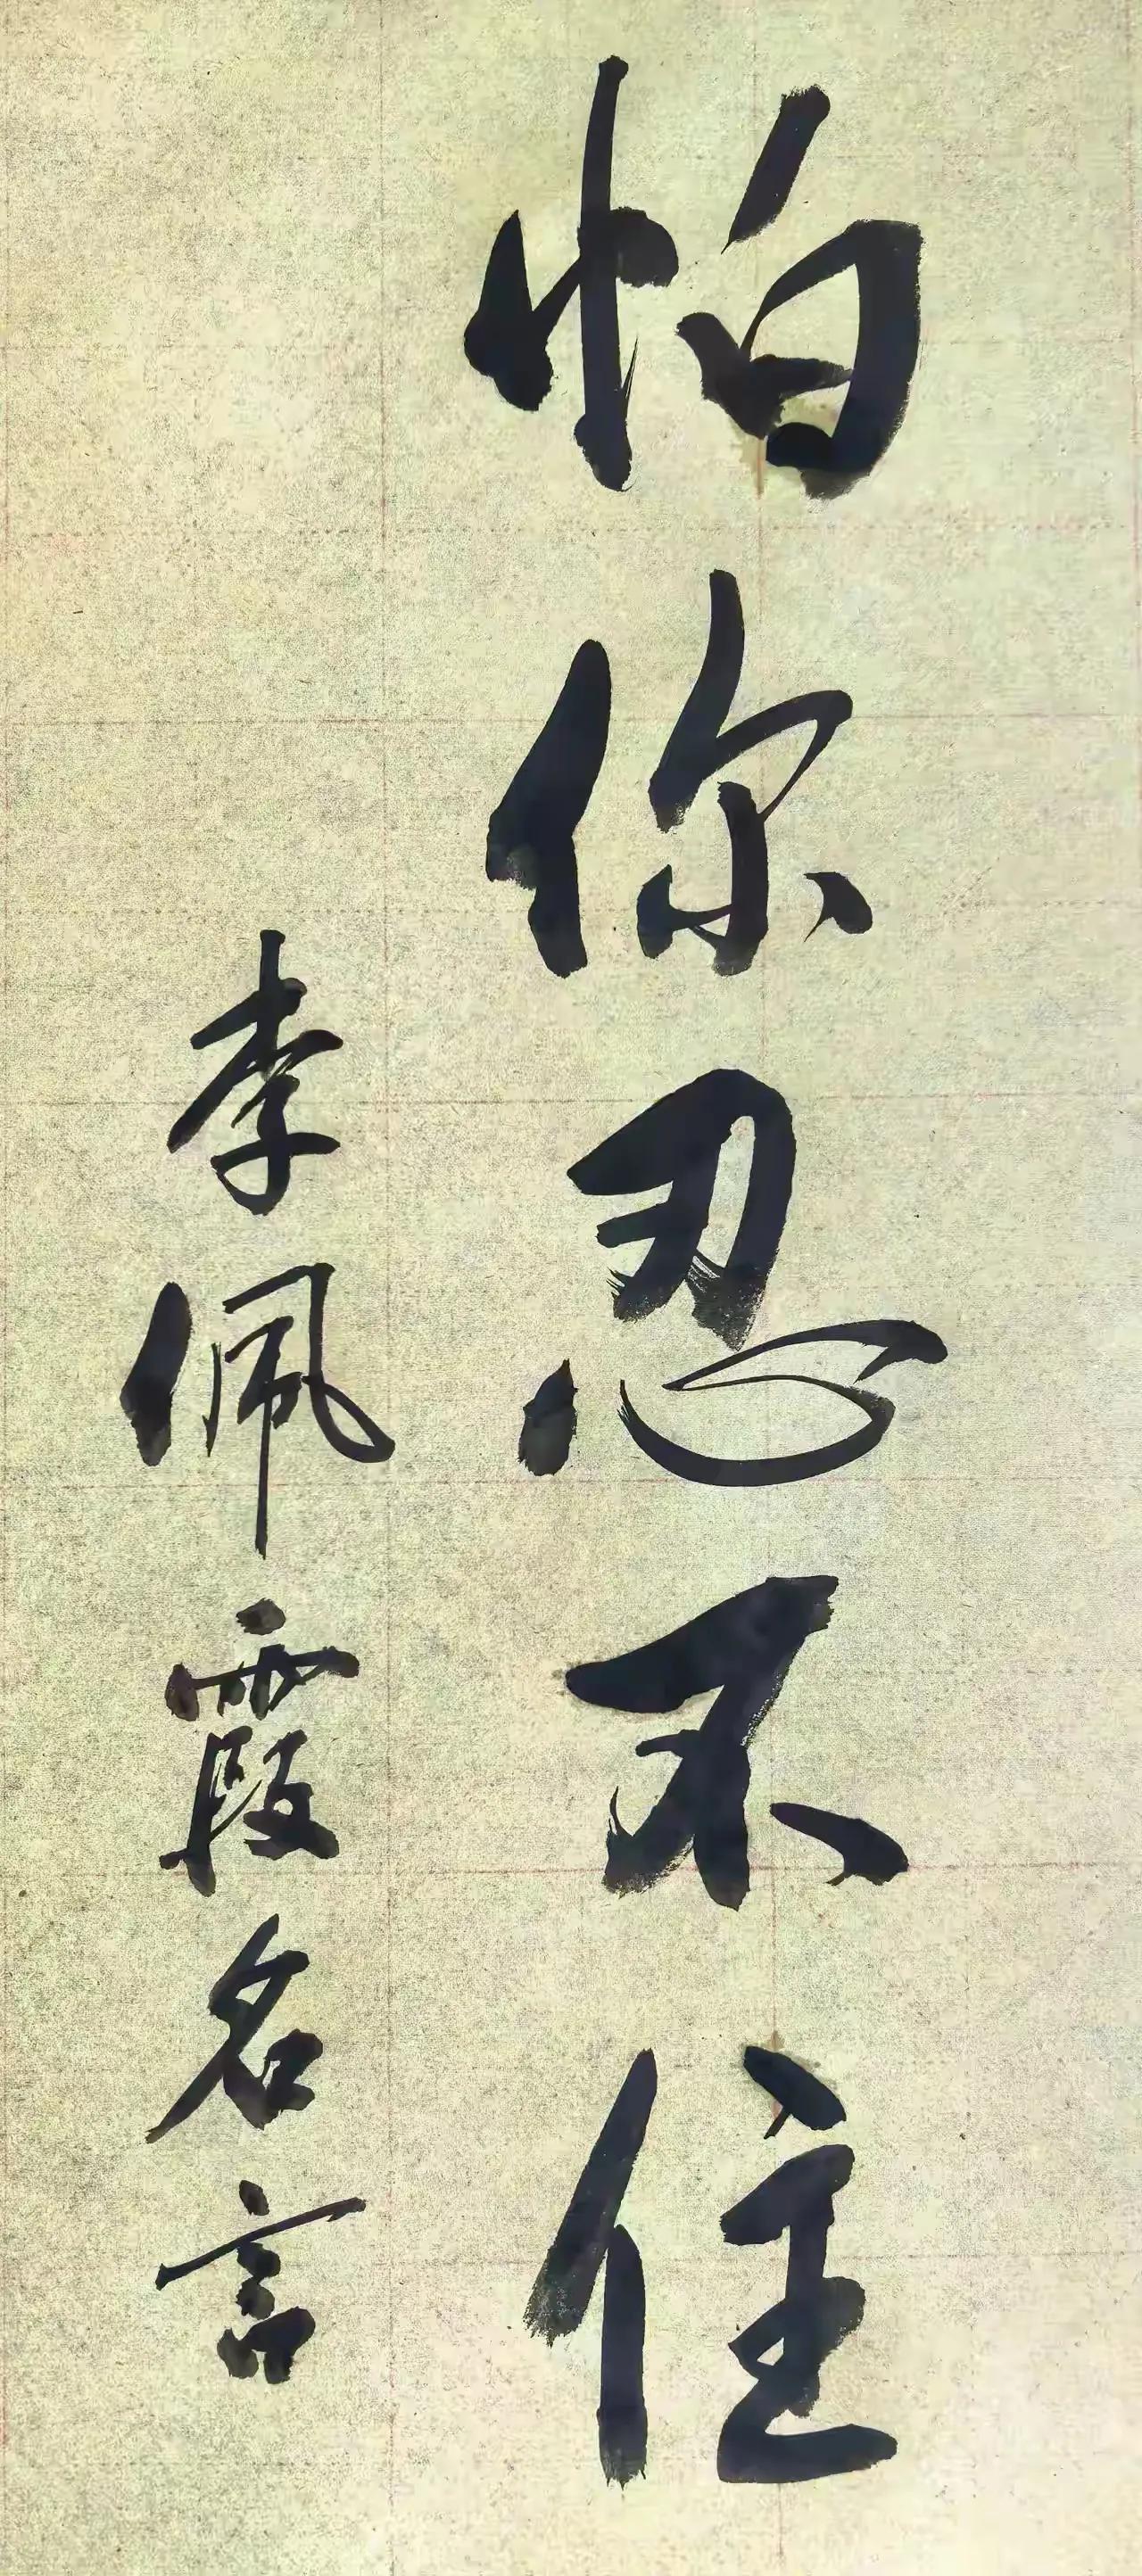 怕你忍不住
李佩霞名言